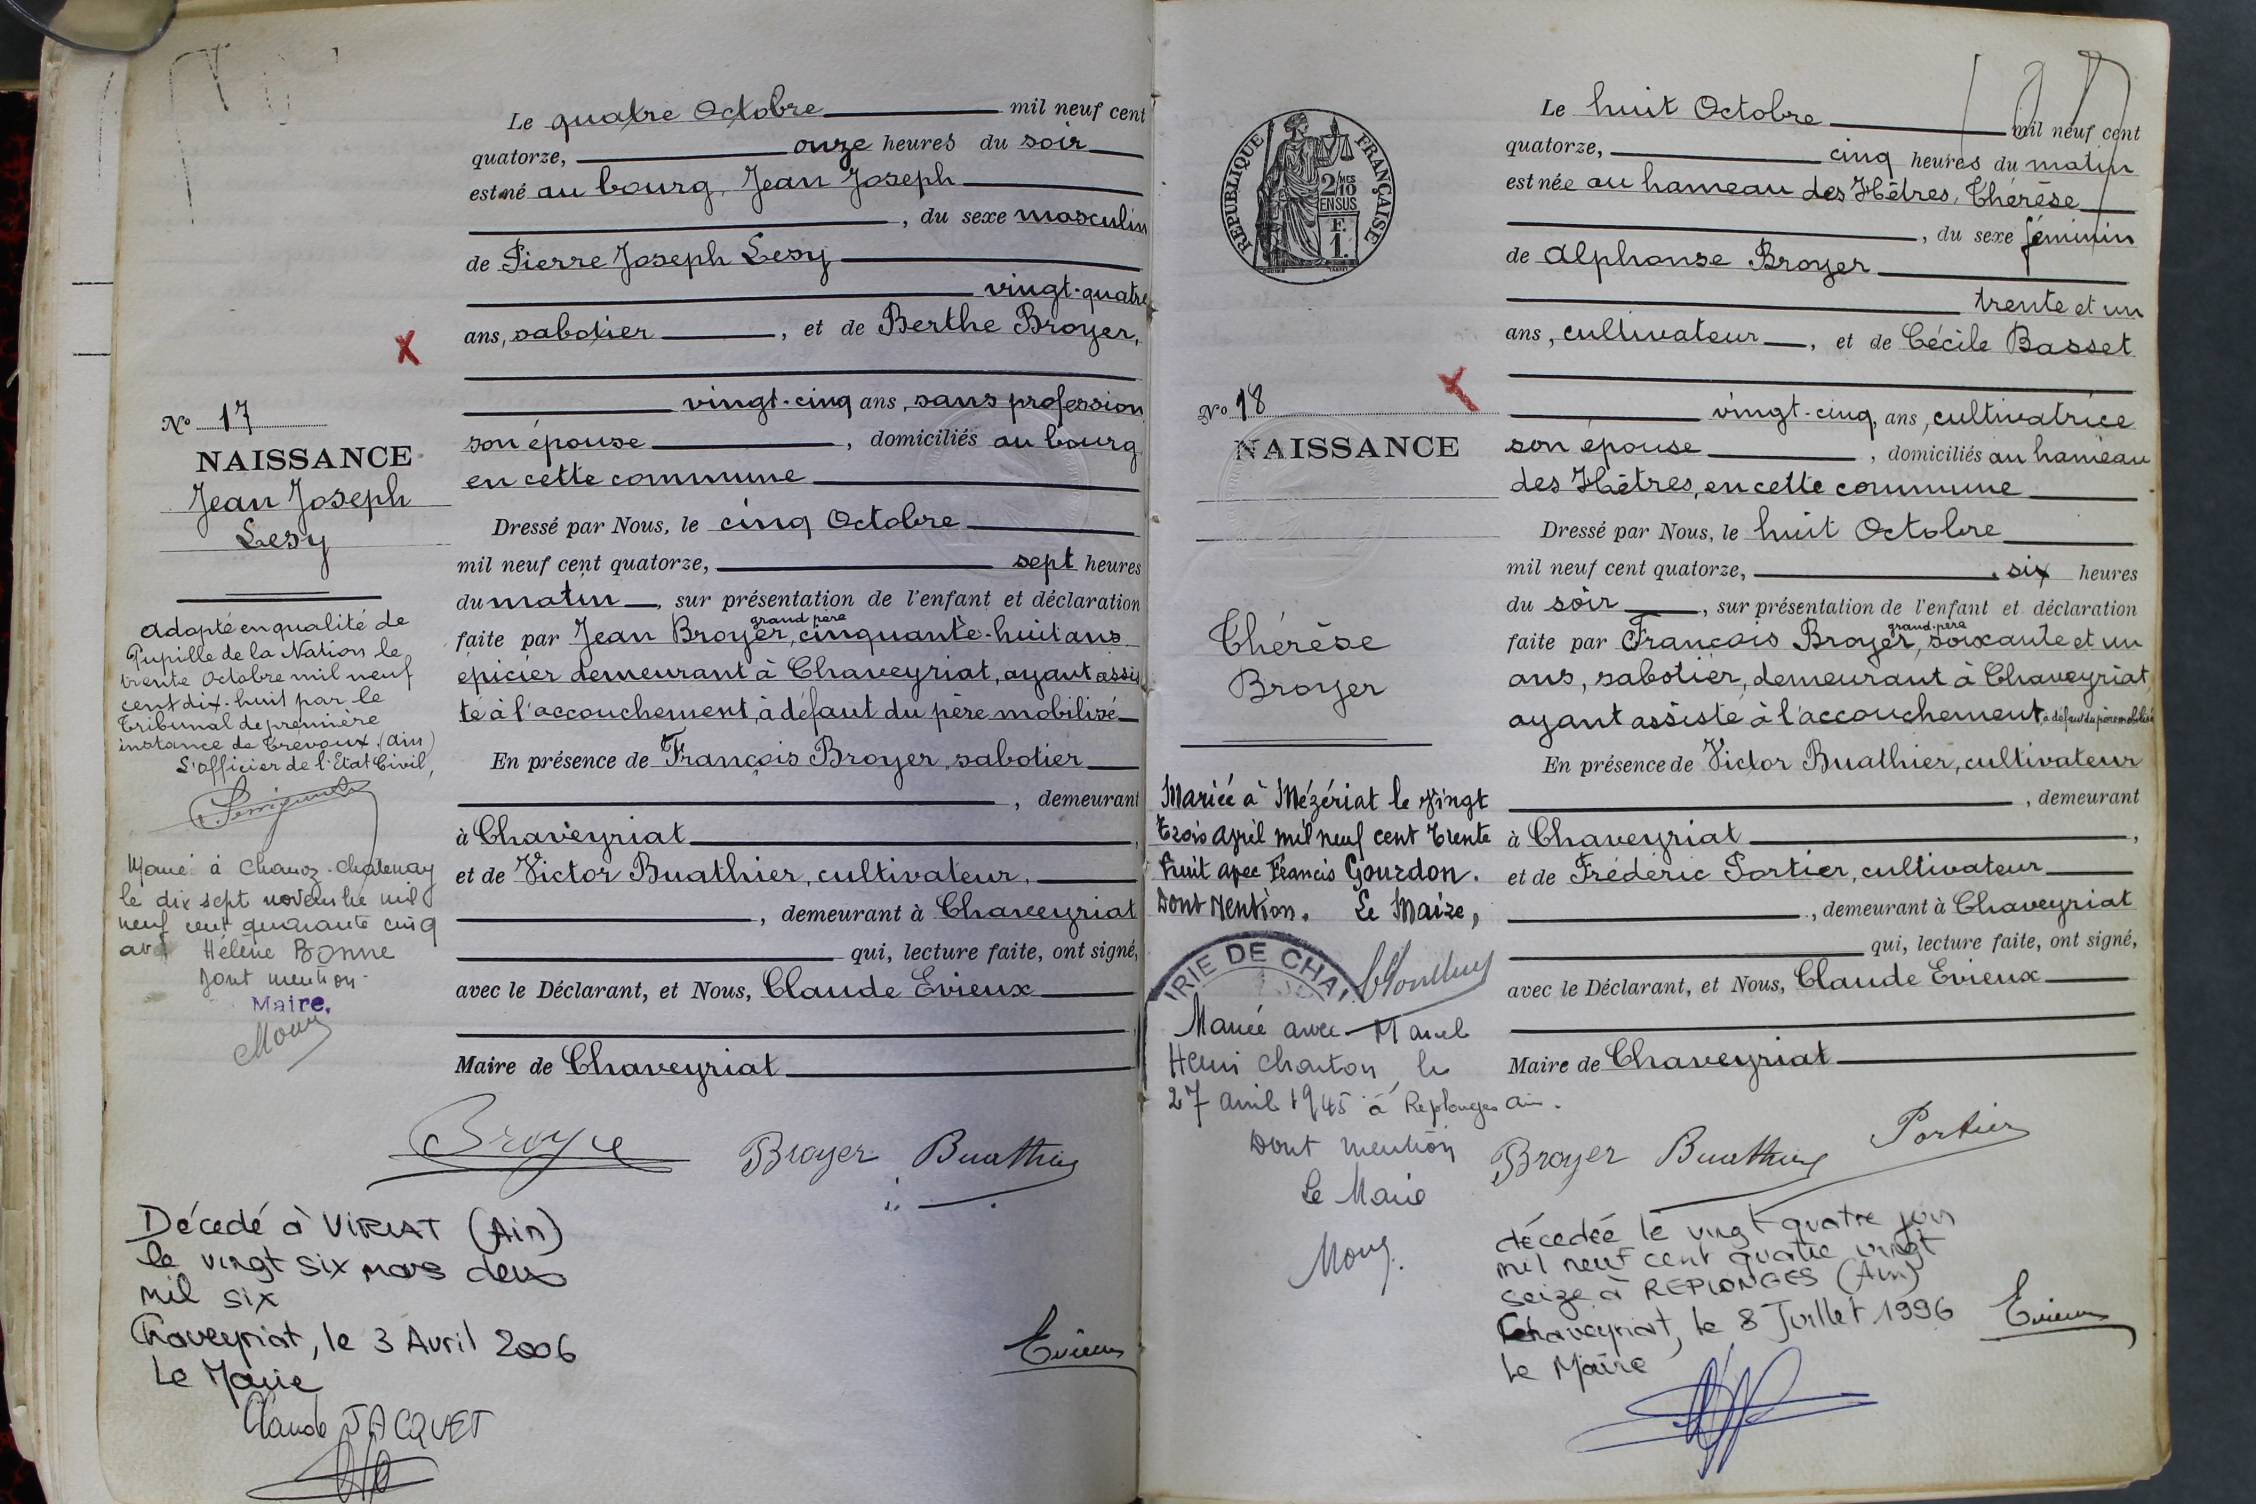 Le quatre Octobre mil neuf cent
quatorze, onze heures du soir
est né au bourg, Jean Joseph
, du sexe masculin
de Pierre Joseph Lesy
vingt-quatre
ans, sabotier , et de Berthe Broyer,
vingt-cinq ans, sans profession
son épouse , domiciliés au bourg
en cette commune
Dressé par Nous, le cinq Octobre
mil neuf cent quatorze, sept heures
du matin , sur présentation de l'enfant et déclaration
grand père
faite par Jean Broyer, cinquante-huit ans
épicier demeurant à Chaveyriat, ayant assis
té à l'accouchement, à défaut du père mobilisé
En présence de François Broyer, sabotier
, demeurant
à Chaveyriat ,
et de Victor Buathier, cultivateur,
, demeurant à Chaveyriat
qui, lecture faite, ont signé,
avec le Déclarant, et Nous, Claude Evieux
Maire de Chaveyriat
Broyer Broyer Buathier
Evieux
No 17
NAISSANCE
Jean Joseph
Lesy
Adopté en qualité de
Pupille de la Nation le
trente Octobre mil neuf
cent dix-huit par le
Tribunal de première
instance de Trévoux (Ain)
L'officier de l'Etat Civil,
Marié à Chanoz-Chatenay
le dix sept novembre mil
neuf cent quarante cinq
avec Hélène Bonne
Dont mention
Maire,
Décédé à VIRIAT (Ain)
le vingt six mars deux
mil six
Chaveyriat, le 3 Avril 2006
Le Maire
Claude JACQUET
RÉPUBLIQUE FRANÇAISE
2/10 MES
EN SUS
F.
1.
Le huit Octobre mil neuf cent
quatorze, cinq heures du matin
est née au hameau des Hêtres, Thérèse
, du sexe féminin
de Alphonse Broyer
trente et un
ans, cultivateur , et de Cécile Basset
vingt-cinq, ans, cultivatrice
son épouse , domiciliés au hameau
des Hêtres, en cette commune
Dressé par Nous, le huit Octobre
mil neuf cent quatorze, six heures
du soir , sur présentation de l'enfant et déclaration
grand-père
faite par François Broyer, soixante et un
ans, sabotier, demeurant à Chaveyriat,
ayant assisté à l'accouchement, à défaut du père mobilisé
En présence de Victor Buathier, cultivateur
, demeurant
à Chaveyriat ,
et de Frédéric Portier, cultivateur
, demeurant à Chaveyriat
qui, lecture faite, ont signé,
avec le Déclarant, et Nous, Claude Evieux
Maire de Chaveyriat
Broyer Buathier Portier
Evieux
No 18
NAISSANCE
Thérèse
Broyer
Mariée à Mézériat le vingt
trois avril mil neuf cent trente
huit avec Francis Gourdon.
Dont Mention. Le Maire,
IRIE DE CHA
Mariée avec Marcel
Henri Charton le
27 avril 1945 à Replonges Ain.
Dont mention
Le Maire
décédée le vingt quatre juin
mil neuf cent quatre vingt
seize à REPLONGES (Ain)
Chaveyriat, le 8 Juillet 1996
Le Maire